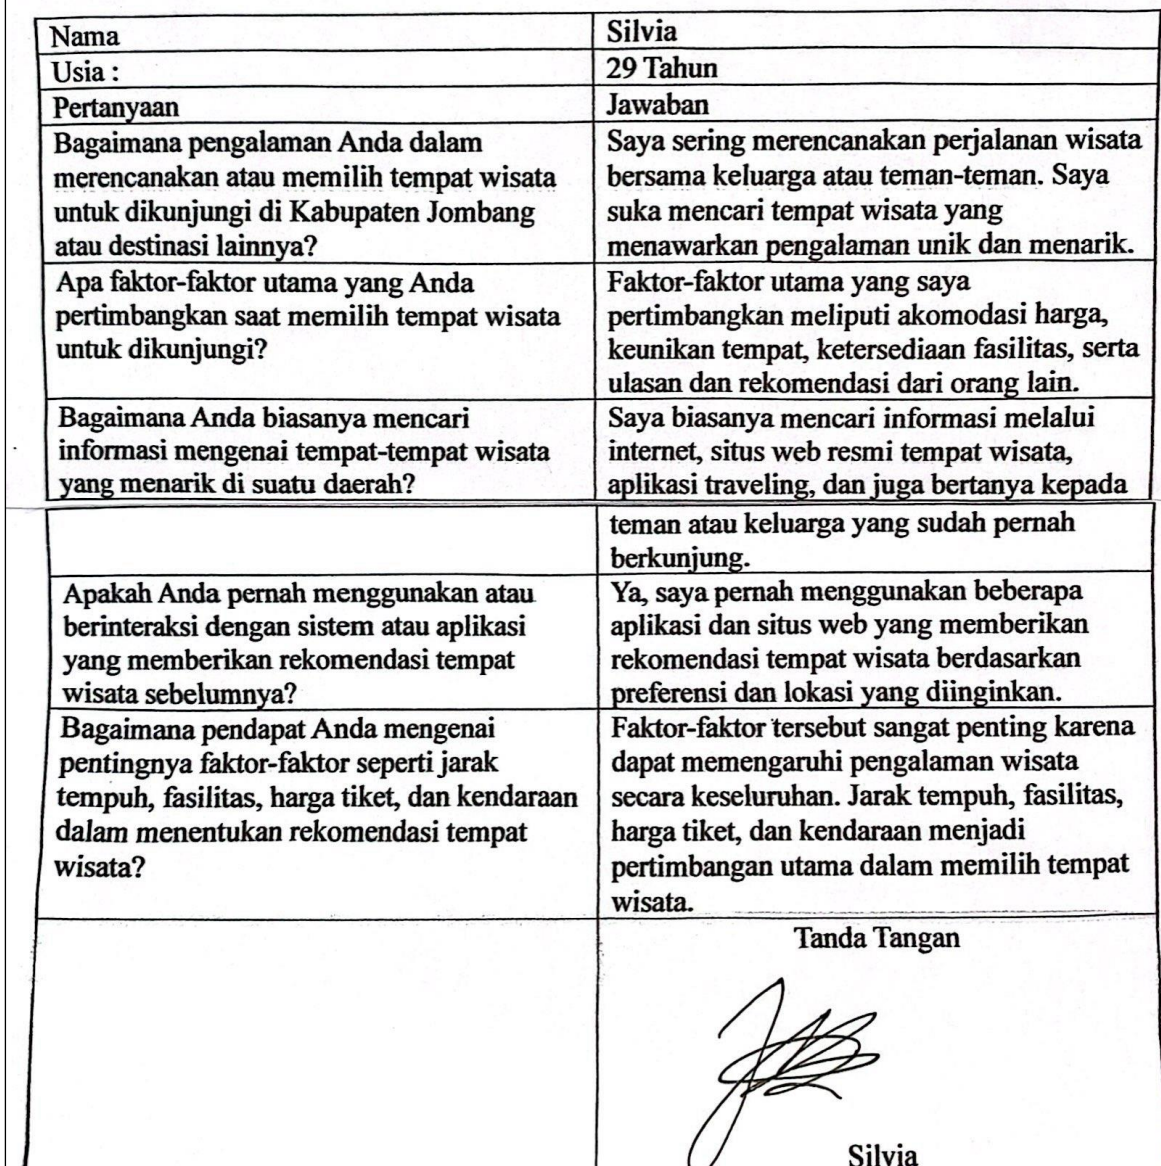 Nama
Silvia
Usia :
29 Tahun
Pertanyaan
Jawaban
Bagaimana pengalaman Anda dalam
merencanakan atau memilih tempat wisata
untuk dikunjungi di Kabupaten Jombang
atau destinasi lainnya?
Saya sering merencanakan perjalanan wisata
bersama keluarga atau teman-teman. Saya
suka mencari tempat wisata yang
menawarkan pengalaman unik dan menarik.
Apa faktor-faktor utama yang Anda
pertimbangkan saat memilih tempat wisata
untuk dikunjungi?
Faktor-faktor utama yang saya
pertimbangkan meliputi akomodasi harga,
keunikan tempat, ketersediaan fasilitas, serta
ulasan dan rekomendasi dari orang lain.
Bagaimana Anda biasanya mencari
informasi mengenai tempat-tempat wisata
yang menarik di suatu daerah?
Saya biasanya mencari informasi melalui
internet, situs web resmi tempat wisata,
aplikasi traveling, dan juga bertanya kepada
teman atau keluarga yang sudah pernah
berkunjung.
Apakah Anda pernah menggunakan atau
berinteraksi dengan sistem atau aplikasi
yang memberikan rekomendasi tempat
wisata sebelumnya?
Ya, saya pernah menggunakan beberapa
aplikasi dan situs web yang memberikan
rekomendasi tempat wisata berdasarkan
preferensi dan lokasi yang diinginkan.
Bagaimana pendapat Anda mengenai
pentingnya faktor-faktor seperti jarak
tempuh, fasilitas, harga tiket, dan kendaraan
dalam menentukan rekomendasi tempat
wisata?
Faktor-faktor tersebut sangat penting karena
dapat memengaruhi pengalaman wisata
secara keseluruhan. Jarak tempuh, fasilitas,
harga tiket, dan kendaraan menjadi
pertimbangan utama dalam memilih tempat
wisata.
Tanda Tangan
Silvia